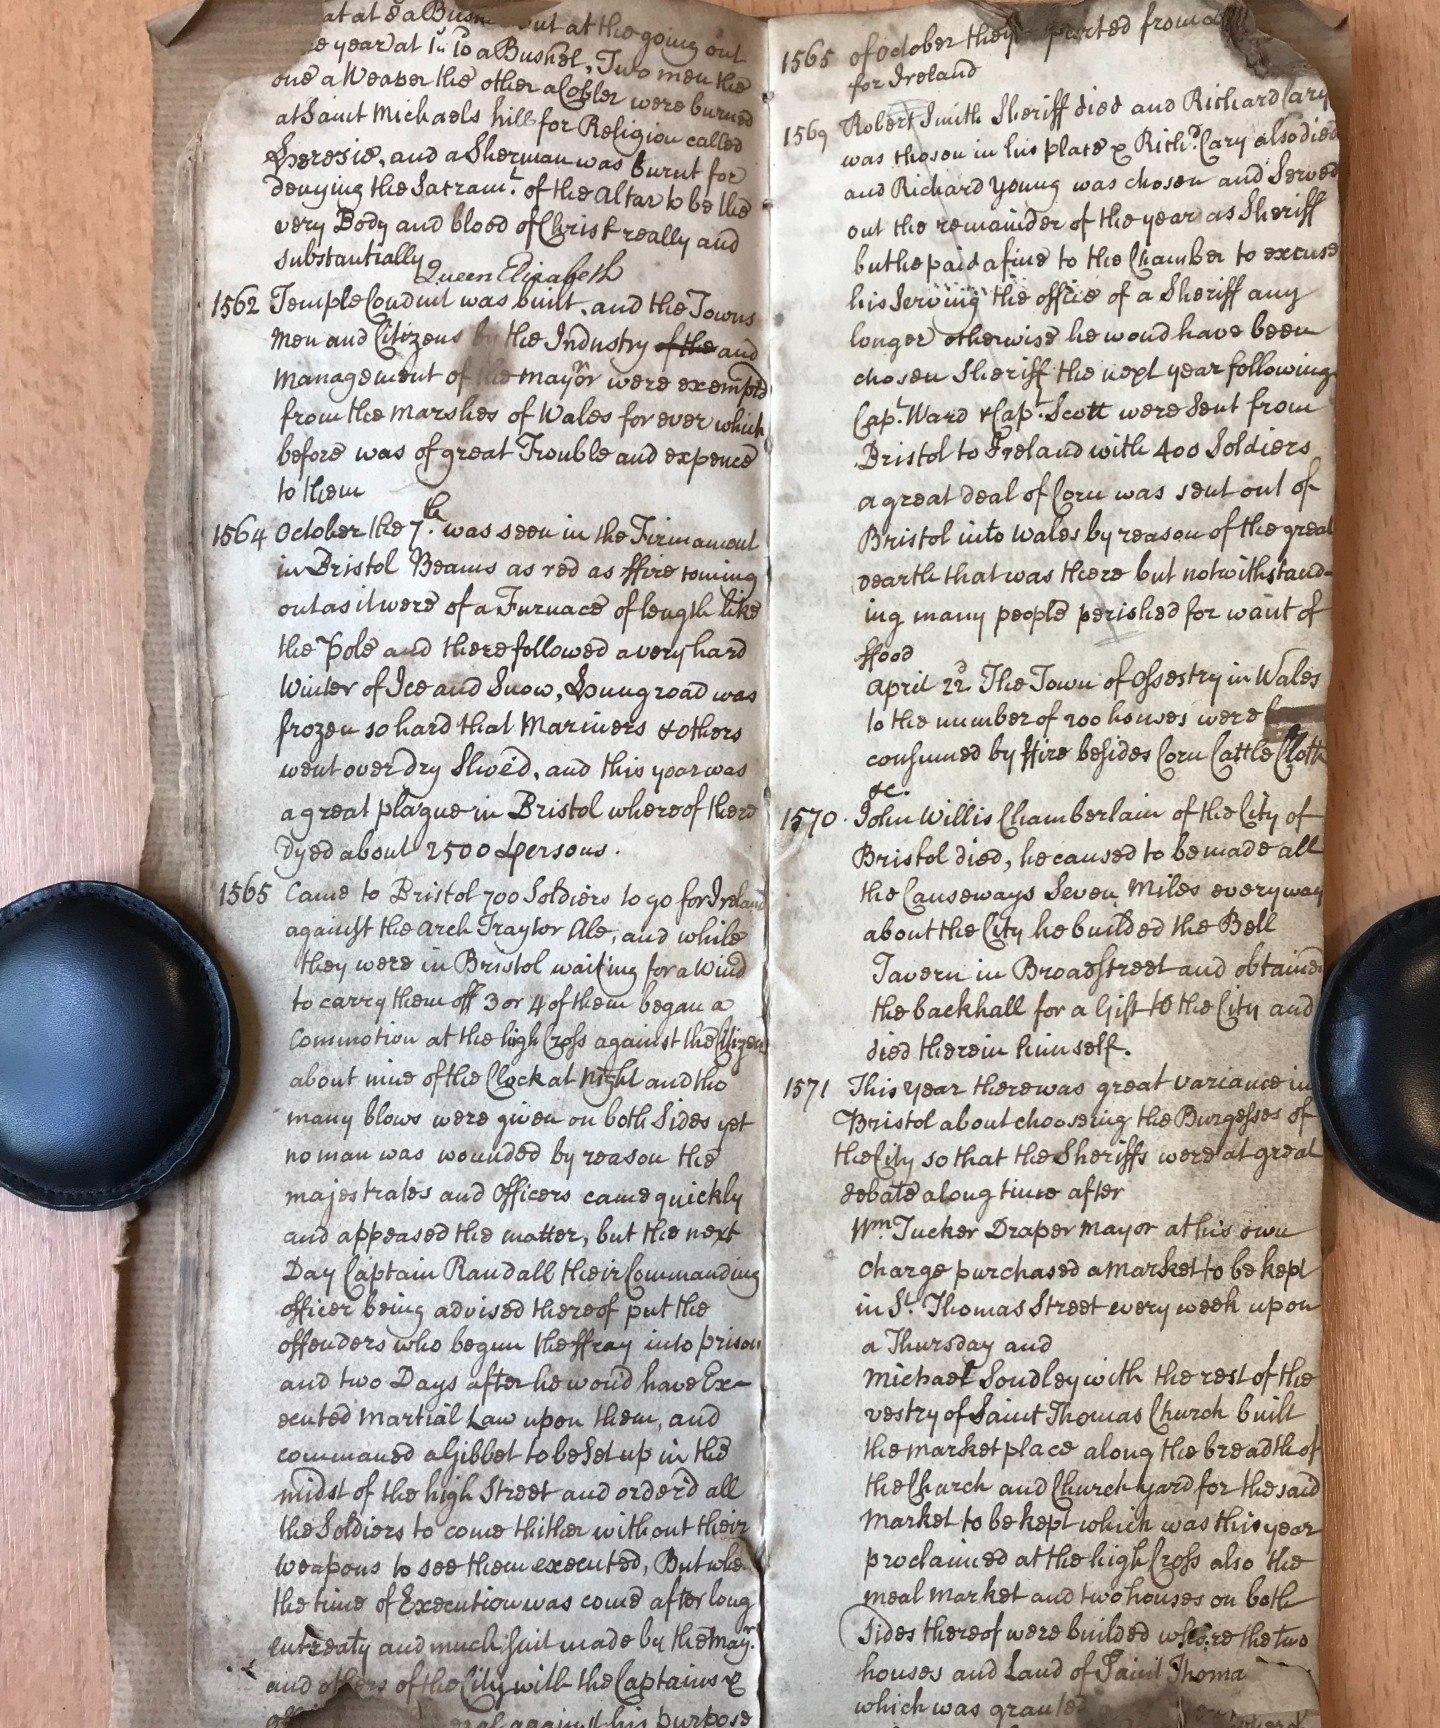 at at 8 a Bush but at the going out
year at 1s. 10 a Bushel, Two men the
one a Weaver the other a Cobler were burned
at Saint Michaels hill for Religion called
Heresie, and a Sherman was burnt for
denying the Sacramt. of the Altar to be the
very Body and blood of Christ really and
substantially
Queen Elizabeth
1562 Temple Conduit was built, and the Towns
Men and Citizens by the Industry of the and
Management of the Mayor were exempted
from the Marshes of Wales for ever which
before was of great Trouble and expence
to them
1564 October the 7th. was seen in the Firmament
in Bristol Beams as red as ffire coming
out as it were of a Furnace of length like
the Pole and there followed a very hard
Winter of Ice and Snow, Hungroad was
frozen so hard that Mariners & others
went over dry Shoed, and this year was
a great plague in Bristol whereof there
Dyed about 2500 persons.
1565 Came to Bristol 700 Soldiers to go for Ireland
against the Arch Traytor Ale, and while
they were in Bristol waiting for a Wind
to carry them off 3 or 4 of them began a
Commotion at the high Cross against the Citizens
about nine of the Clock at Night and tho
many blows were given on both Sides yet
no man was wounded by reason the
majestrates and Officers came quickly
and appeased the matter, but the next
Day Captain Randall their Commanding
officer being advised thereof put the
offenders who begun the ffray into prison
and two Days after he woud have Ex=
ecuted Martial Law upon them, and
commaned a Gibbet to be Set up in the
midst of the high Street and order'd all
the Soldiers to come thither with out their
weapons to see them executed, But when
the time of Execution was come after long
entreaty and much suit made by the Mayr.
and others of the City with the Captains &
against his purpose
1565 of October they parted from
for Ireland
1569 Robert Smith Sheriff died and Richard Cary
was chosen in his place & Richd. Cary also died
and Richard Young was chosen and Served
out the remainder of the year as Sheriff
but he paid a fine to the Chamber to excuse
his Serving the office of a Sheriff any
longer otherwise he woud have been
chosen Sheriff the next year following
Capt. Ward & Capt. Scott were Sent from
Bristol to Ireland with 400 Soldiers
a great deal of Corn was sent out of
Bristol into Wales by reason of the great
dearth that was there but notwithstand=
ing many people perished for want of
ffood
April 22d. The Town of Ossestry in Wales
to the number of 200 houses were
consumed by ffire besides Corn Cattle Cloth
&c.
1570. John Willis Chamberlain of the City of
Bristol died, he caused to be made all
the Causeways Seven Miles every way
about the City he builded the Bell
Tavern in Broadstreet and obtained
the backhall for a Gift to the City and
died therein himself.
1571 This year there was great variance in
Bristol about choosing the Burgesses of
the City so that the Sheriffs were at great
debate a long time after
Wm. Tucker Draper Mayor at his own
charge purchased a market to be kept
in St. Thomas Street every week upon
a Thursday and
Michael Soudley with the rest of the
vestry of Saint Thomas Church built
the market place along the breadth of
the Church and Church yard for the said
Market to be kept which was this year
proclaimed at the high Cross also the
meal market and two houses on both
Sides thereof were builded where the two
houses and Land of Saint Thoma
which was granted